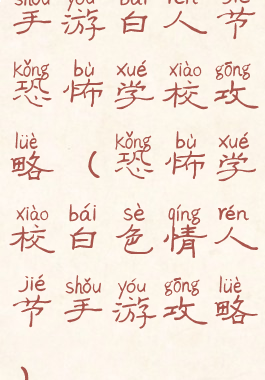 手 游 白 人 节
kǒng bù xué xiào gōng
恐 怖 学 校 攻
lüè kǒng bù xué
略 ( 恐 怖 学
xiào bái sè qíng rén
校 白 色 情 人
jié shǒu yóu gōng lüè
节 手 游 攻 略
)